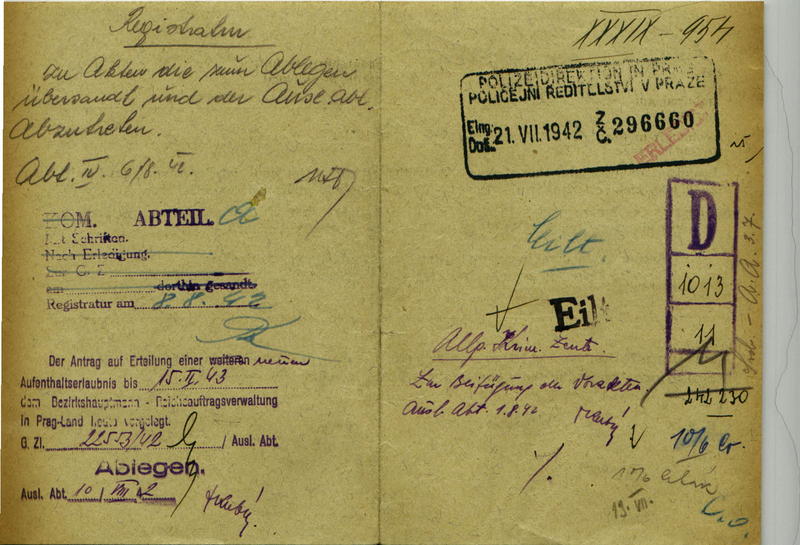 Registratur
zu Akten die zum Ablegen
übersandt und der Ausl. Abt.
Abzutreten.
Abt. IV. 6/8. 42.
KOM. ABTEIL. a
Mit Schriften.
Nach Erledigung.
Zur G. Z.
am dorthin gesandt.
Registratur am 8.8.42
Der Antrag auf Erteilung einer weiteren neuen
Aufenthaltserlaubnis bis 15.II.43
dem Bezirkshauptmann - Reichsauftragsverwaltung
in Prag-Land heute vorgelegt.
G. Zl. 2253/42 / Ausl. Abt.
Ablegen.
Ausl. Abt. 10 / VIII. 42
XXXIX - 954
POLIZEIDIREKTION IN PRAG
POLICEJNÍ ŘEDITELSTVÍ V PRAZE
Eing. Doš. 21. VII. 1942 Z. Č. 296660
ERLEDIGT
D
1013
11
Eilt.
Eilt
Allg. Krim. Zentr.
Zur Beifügung der Vorakten
Ausl. Abt. 1.8.42
242 230
10/6
19. VII.